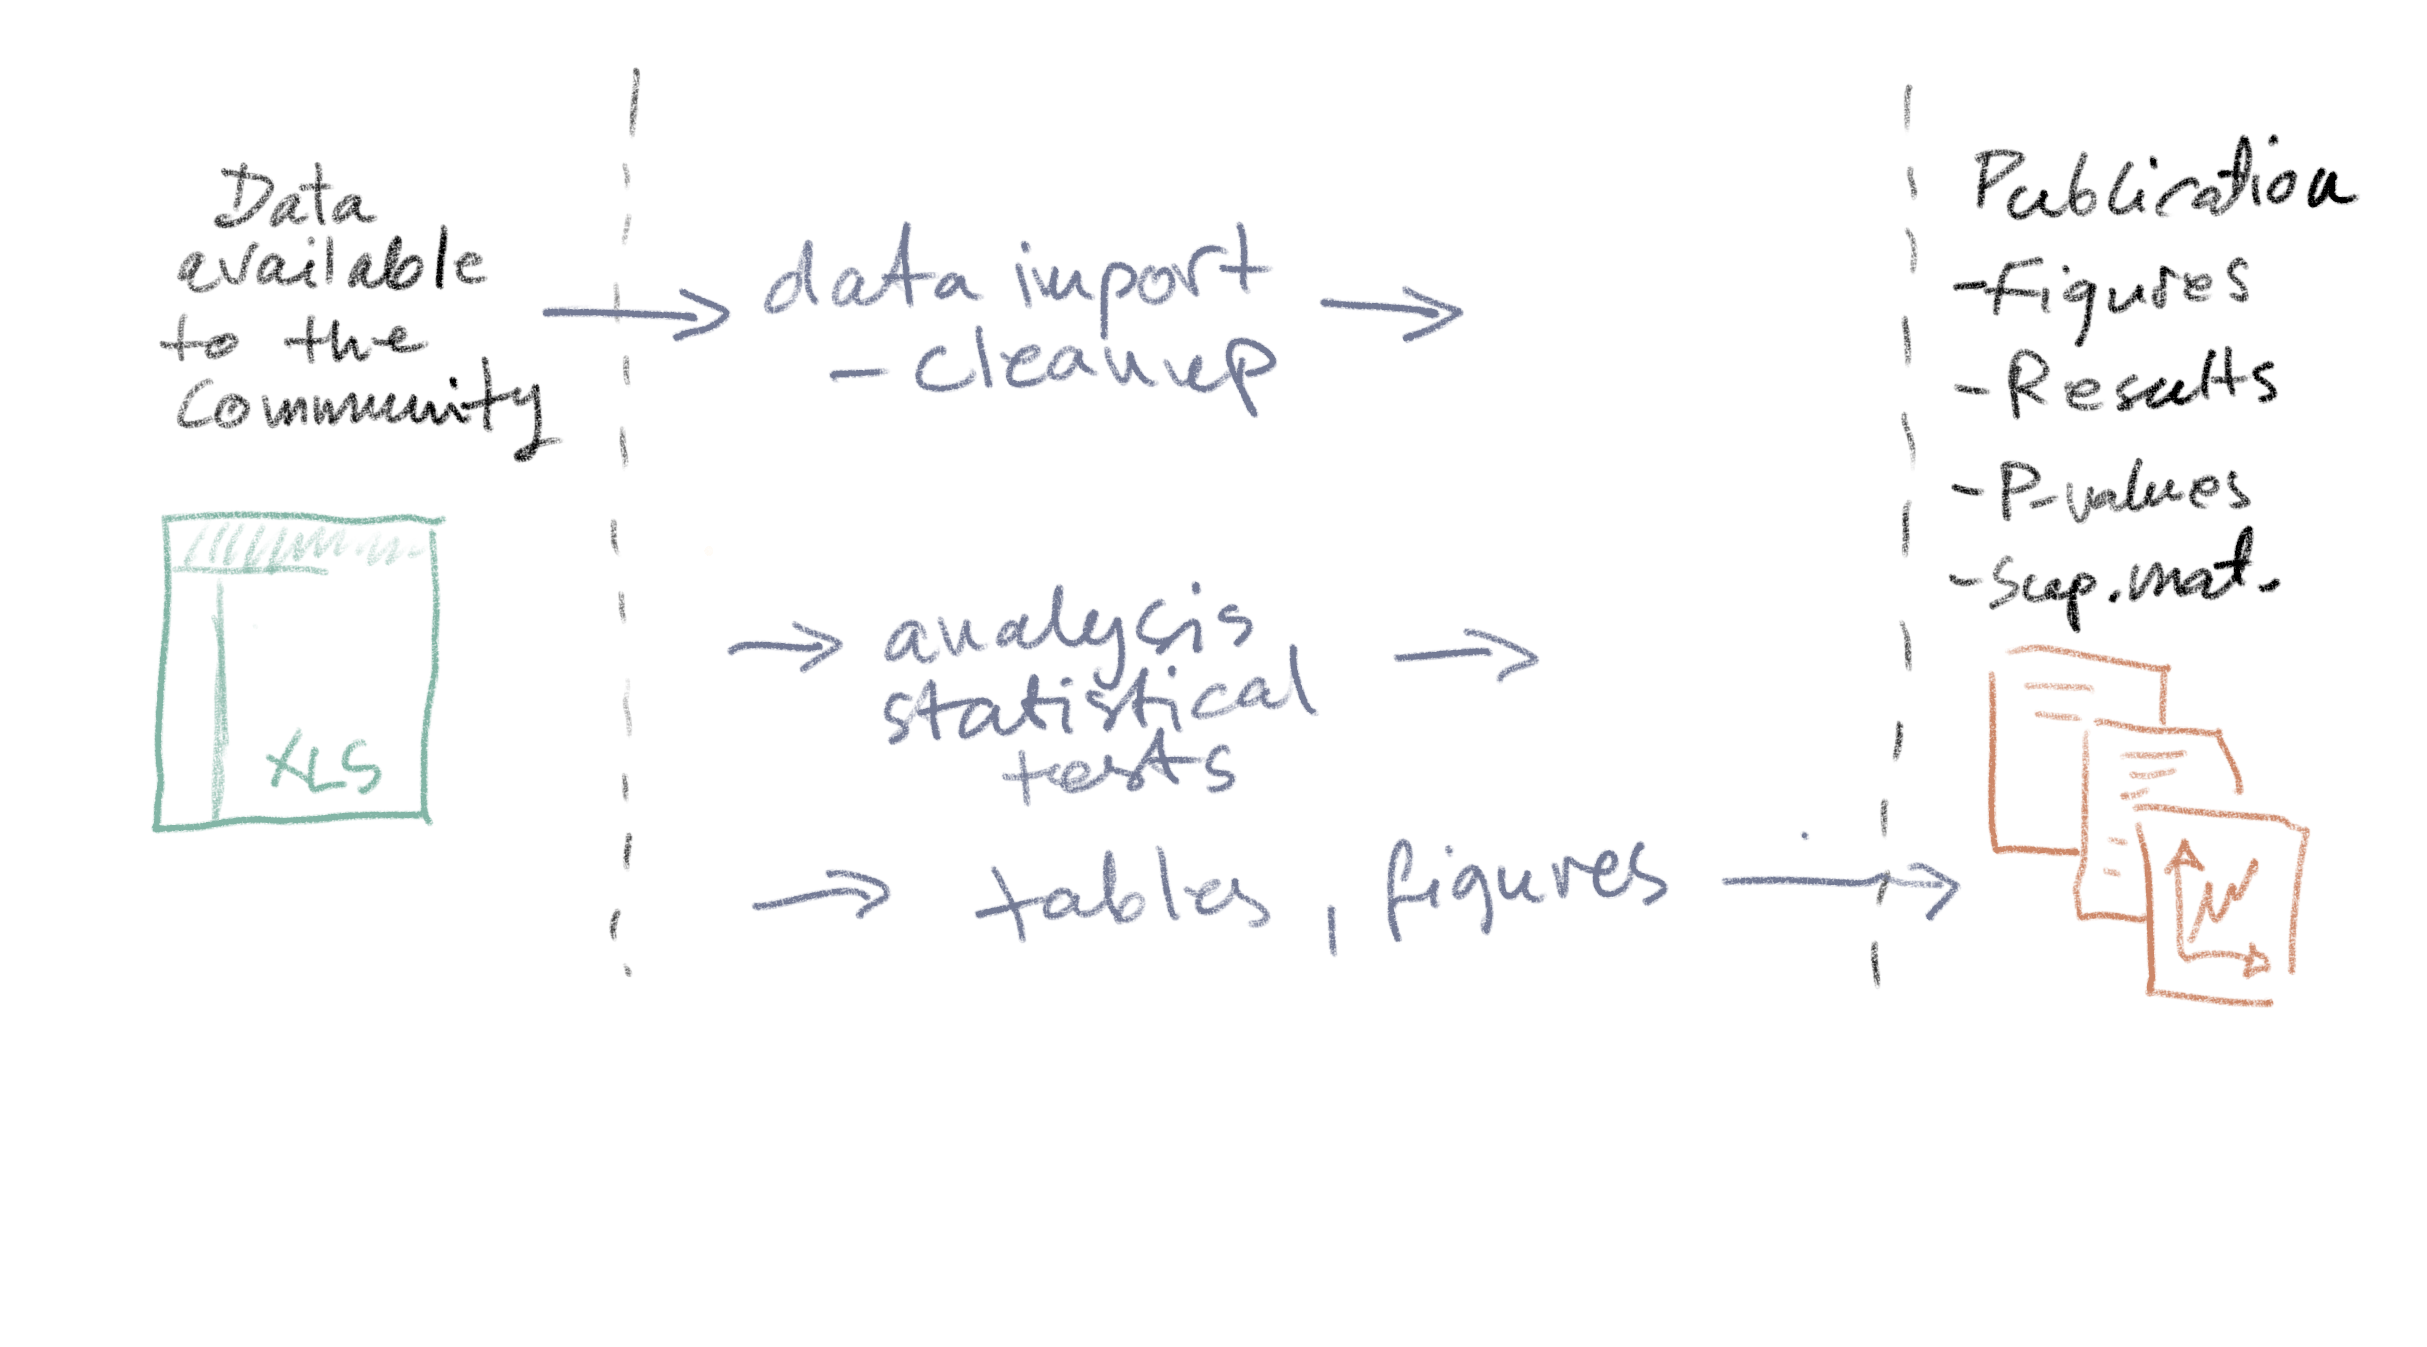 Data
available
to the
Community
XLS
data import
- cleanup
analysis
statistical
tests
tables, figures
Publication
- Figures
- Results
- P-values
- Sup. mat.